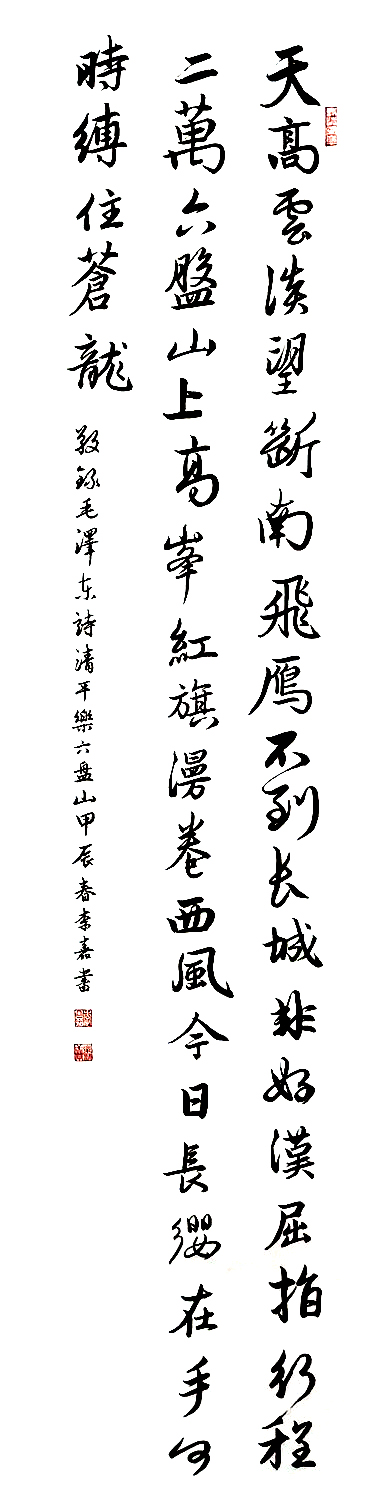 天高雲淡望斷南飛鴈不到长城非好漢屈指行程
二萬六盤山上高峯紅旗漫卷西風今日長纓在手何
時縛住蒼龍
敬錄毛澤东詩清平樂六盘山甲辰春李嘉書